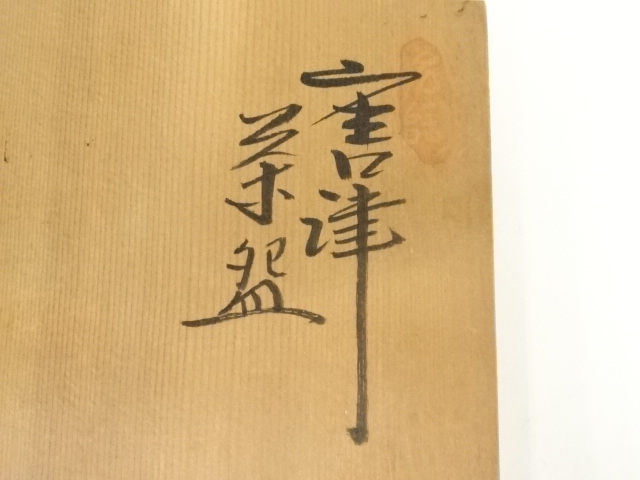 唐津
茶盌